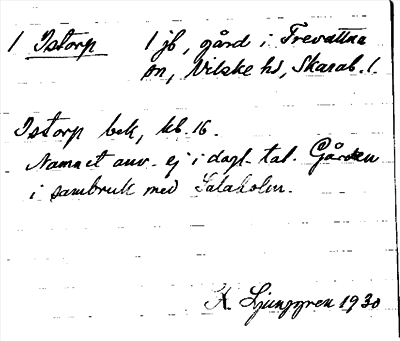 1 Istorp 1 jb, gård i Trevattna
sn, Vilske hd, Skarab. l.
Istorp bek, kb. 16.
Namnet anv. ej i dagl. tal. Gården
i sambruk med Salaholm.
A. Ljunggren 1930